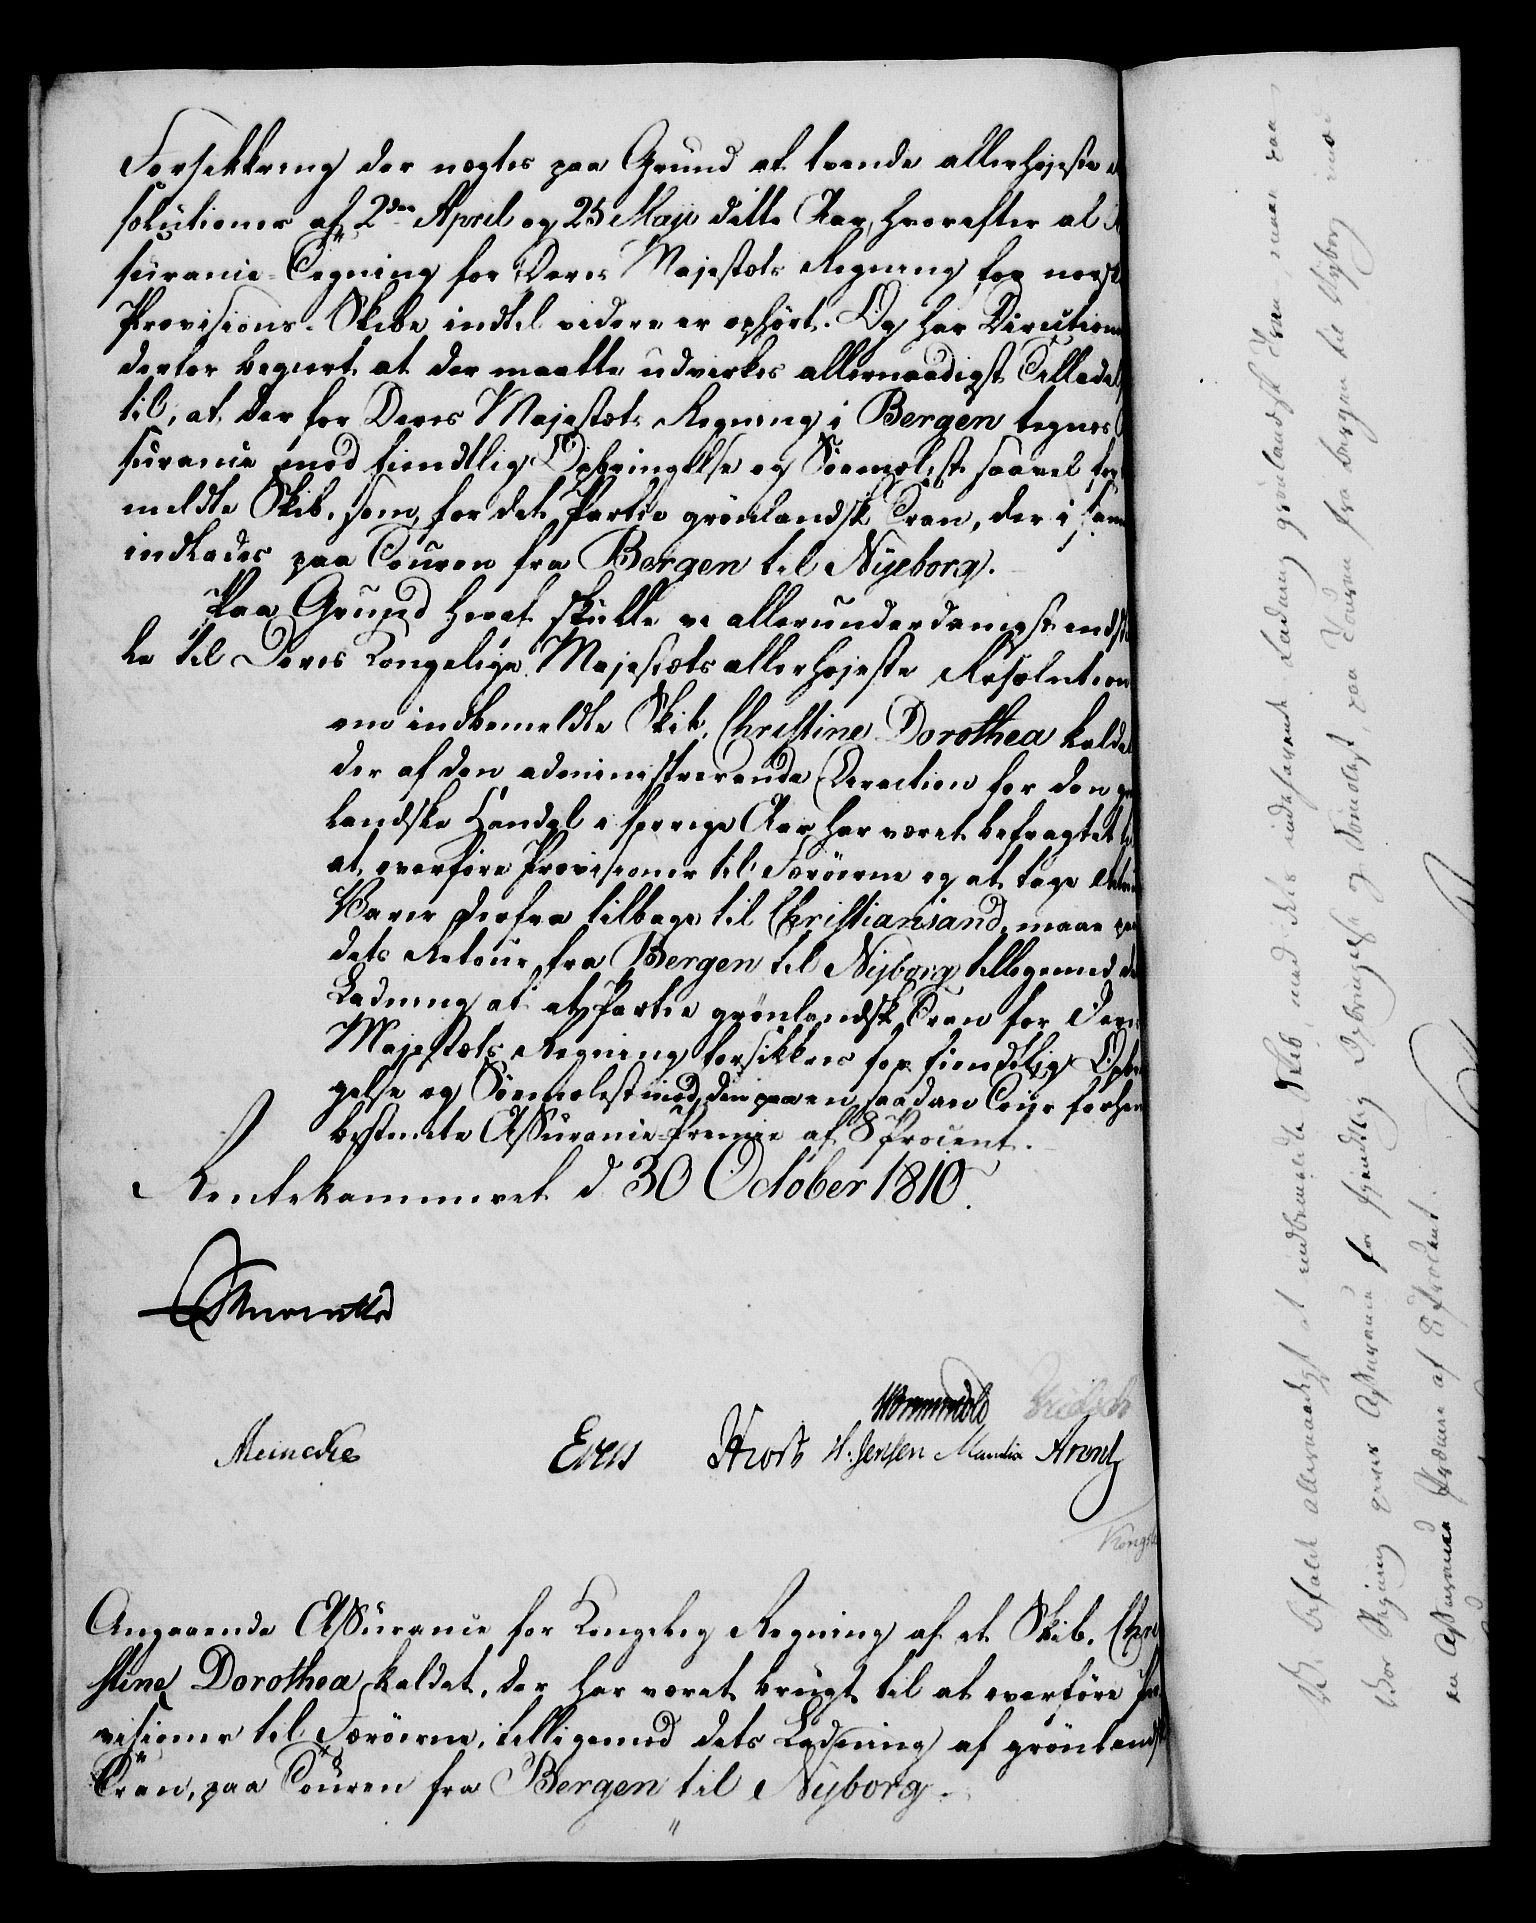 Forsikkring der nægtes paa Grund af tvende allerhøjeste
solutioner af 2den April og 25 Maji dette Aar, hvorefter al
surance-Tegning for Deres Majestæts Regning for norsk
Provisions-Skibe indtil videre er ophört. Og har Direction
derfor begiert at der maatte udvirkes allernaadigst Tillad
til, at der for Deres Majestæts Regning i Bergen tegnes
surance mod fiendtlig Opbringelse og Söemolest saavel for
meldte Skib, som for det Partie grönlandsk Tran, der i sam
indlades paa Touren fra Bergen til Nyeborg.
Paa Grund heraf skulle vi allerunderdanigst indstil
le til Deres Kongelige Majestæts allerhøjeste Resolution
om indbemeldte Skib, Christine Dorothea kaldet
der af den administrerende Direction for den
landske Handel i forrige Aar har været befragtet
at overføre Provisioner til Færöerne og at tage
Varer derfra tilbage til Christiansand, maae paa
dets Retour fra Bergen til Nyborg tilligemed
Ladning af et Partie grönlandsk Tran for Deres
Majestæts Regning forsikkres for fiendtlig Opbrin
gelse og Söemolest mod den paa en saadan Tour forhen
bestemte Assurance-Premie af 8 Procent.
Rentekammeret d 30 October 1810.
Meincke Horst H. Jensen Arentz
Angaaende Assurance for Kongelig Regning af et Skib, Chri
stine Dorothea kaldet, der har været brugt til at overføre Pro
visioner til Færöerne, tilligemed dets Ladning af grönlandsk
Tran, paa Touren fra Bergen til Nyborg.
Vi befale allernaadigst at indbemeldte Skib, med dets indehavende Ladning grønlandsk Tran maae paa
Vor Regning gives Assurance for fjendtlig Opbringelse og Sömolest, paa Touren fra Bergen til Nyborg mod
en Assurance Præmie af 8 Procent.